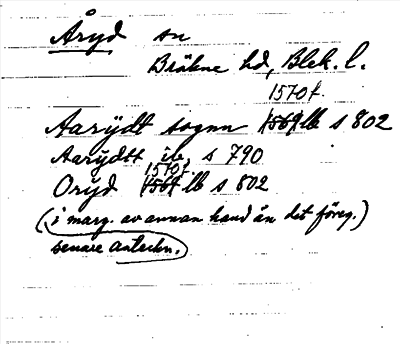 Åryd sn
Bräkne hd, Blek. l.
1570 f.
Aarÿdt sognn 1569 lb s 802
Aarydtt ib. s 790
1570 f.
Oryd 1569 lb s 802
(i marg. av annan hand än det föreg.)
senare anteckn.)